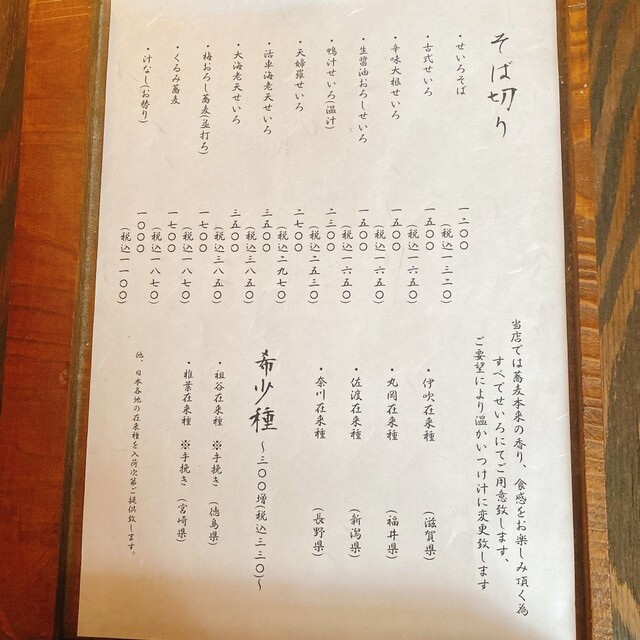 そば切り
・せいろそば
一二〇〇
(税込一三二〇)
・古式せいろ
一五〇〇
(税込一六五〇)
・辛味大根せいろ
一五〇〇
(税込一六五〇)
・生醤油おろしせいろ
一五〇〇
(税込一六五〇)
・鴨汁せいろ(温汁)
二三〇〇
(税込二五三〇)
・天婦羅せいろ
二七〇〇
(税込二九七〇)
・活車海老天せいろ
三五〇〇
(税込三八五〇)
・大海老天せいろ
三五〇〇
(税込三八五〇)
・梅おろし蕎麦(並打ち)
一七〇〇
(税込一八七〇)
・くるみ蕎麦
一七〇〇
(税込一八七〇)
・汁なし(お替り)
一〇〇〇
(税込一一〇〇)
当店では蕎麦本来の香り、食感をお楽しみ頂く為
すべてせいろにてご用意致します、
ご要望により温かいつけ汁に変更致します
・伊吹在来種 (滋賀県)
・丸岡在来種 (福井県)
・佐渡在来種 (新潟県)
・奈川在来種 (長野県)
希少種 〜三〇〇増(税込三三〇)〜
・祖谷在来種 ※手挽き (徳島県)
・椎葉在来種 ※手挽き (宮崎県)
他、日本各地の在来種を入荷次第ご提供致します。